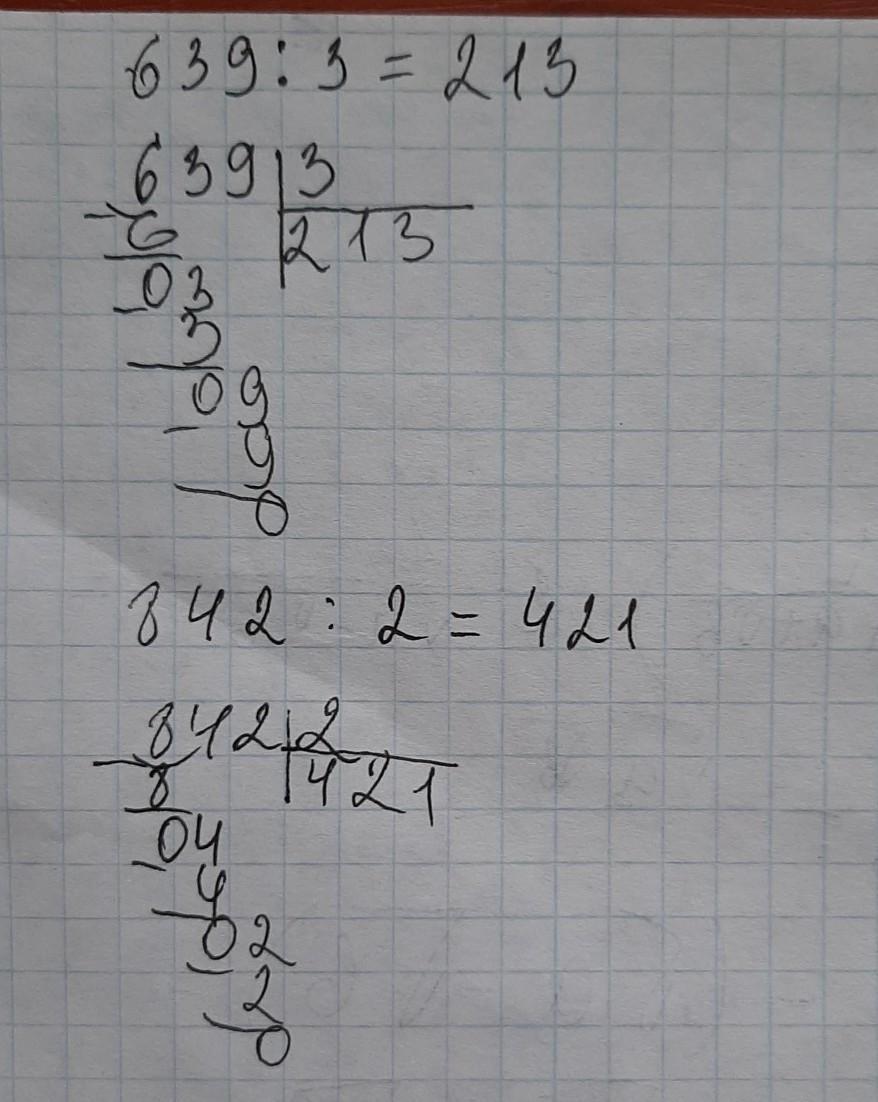 639 : 3 = 213
639 | 3
- 6 | 213
03
- 3
09
- 9
0
842 : 2 = 421
842 | 2
- 8 | 421
04
- 4
02
- 2
0